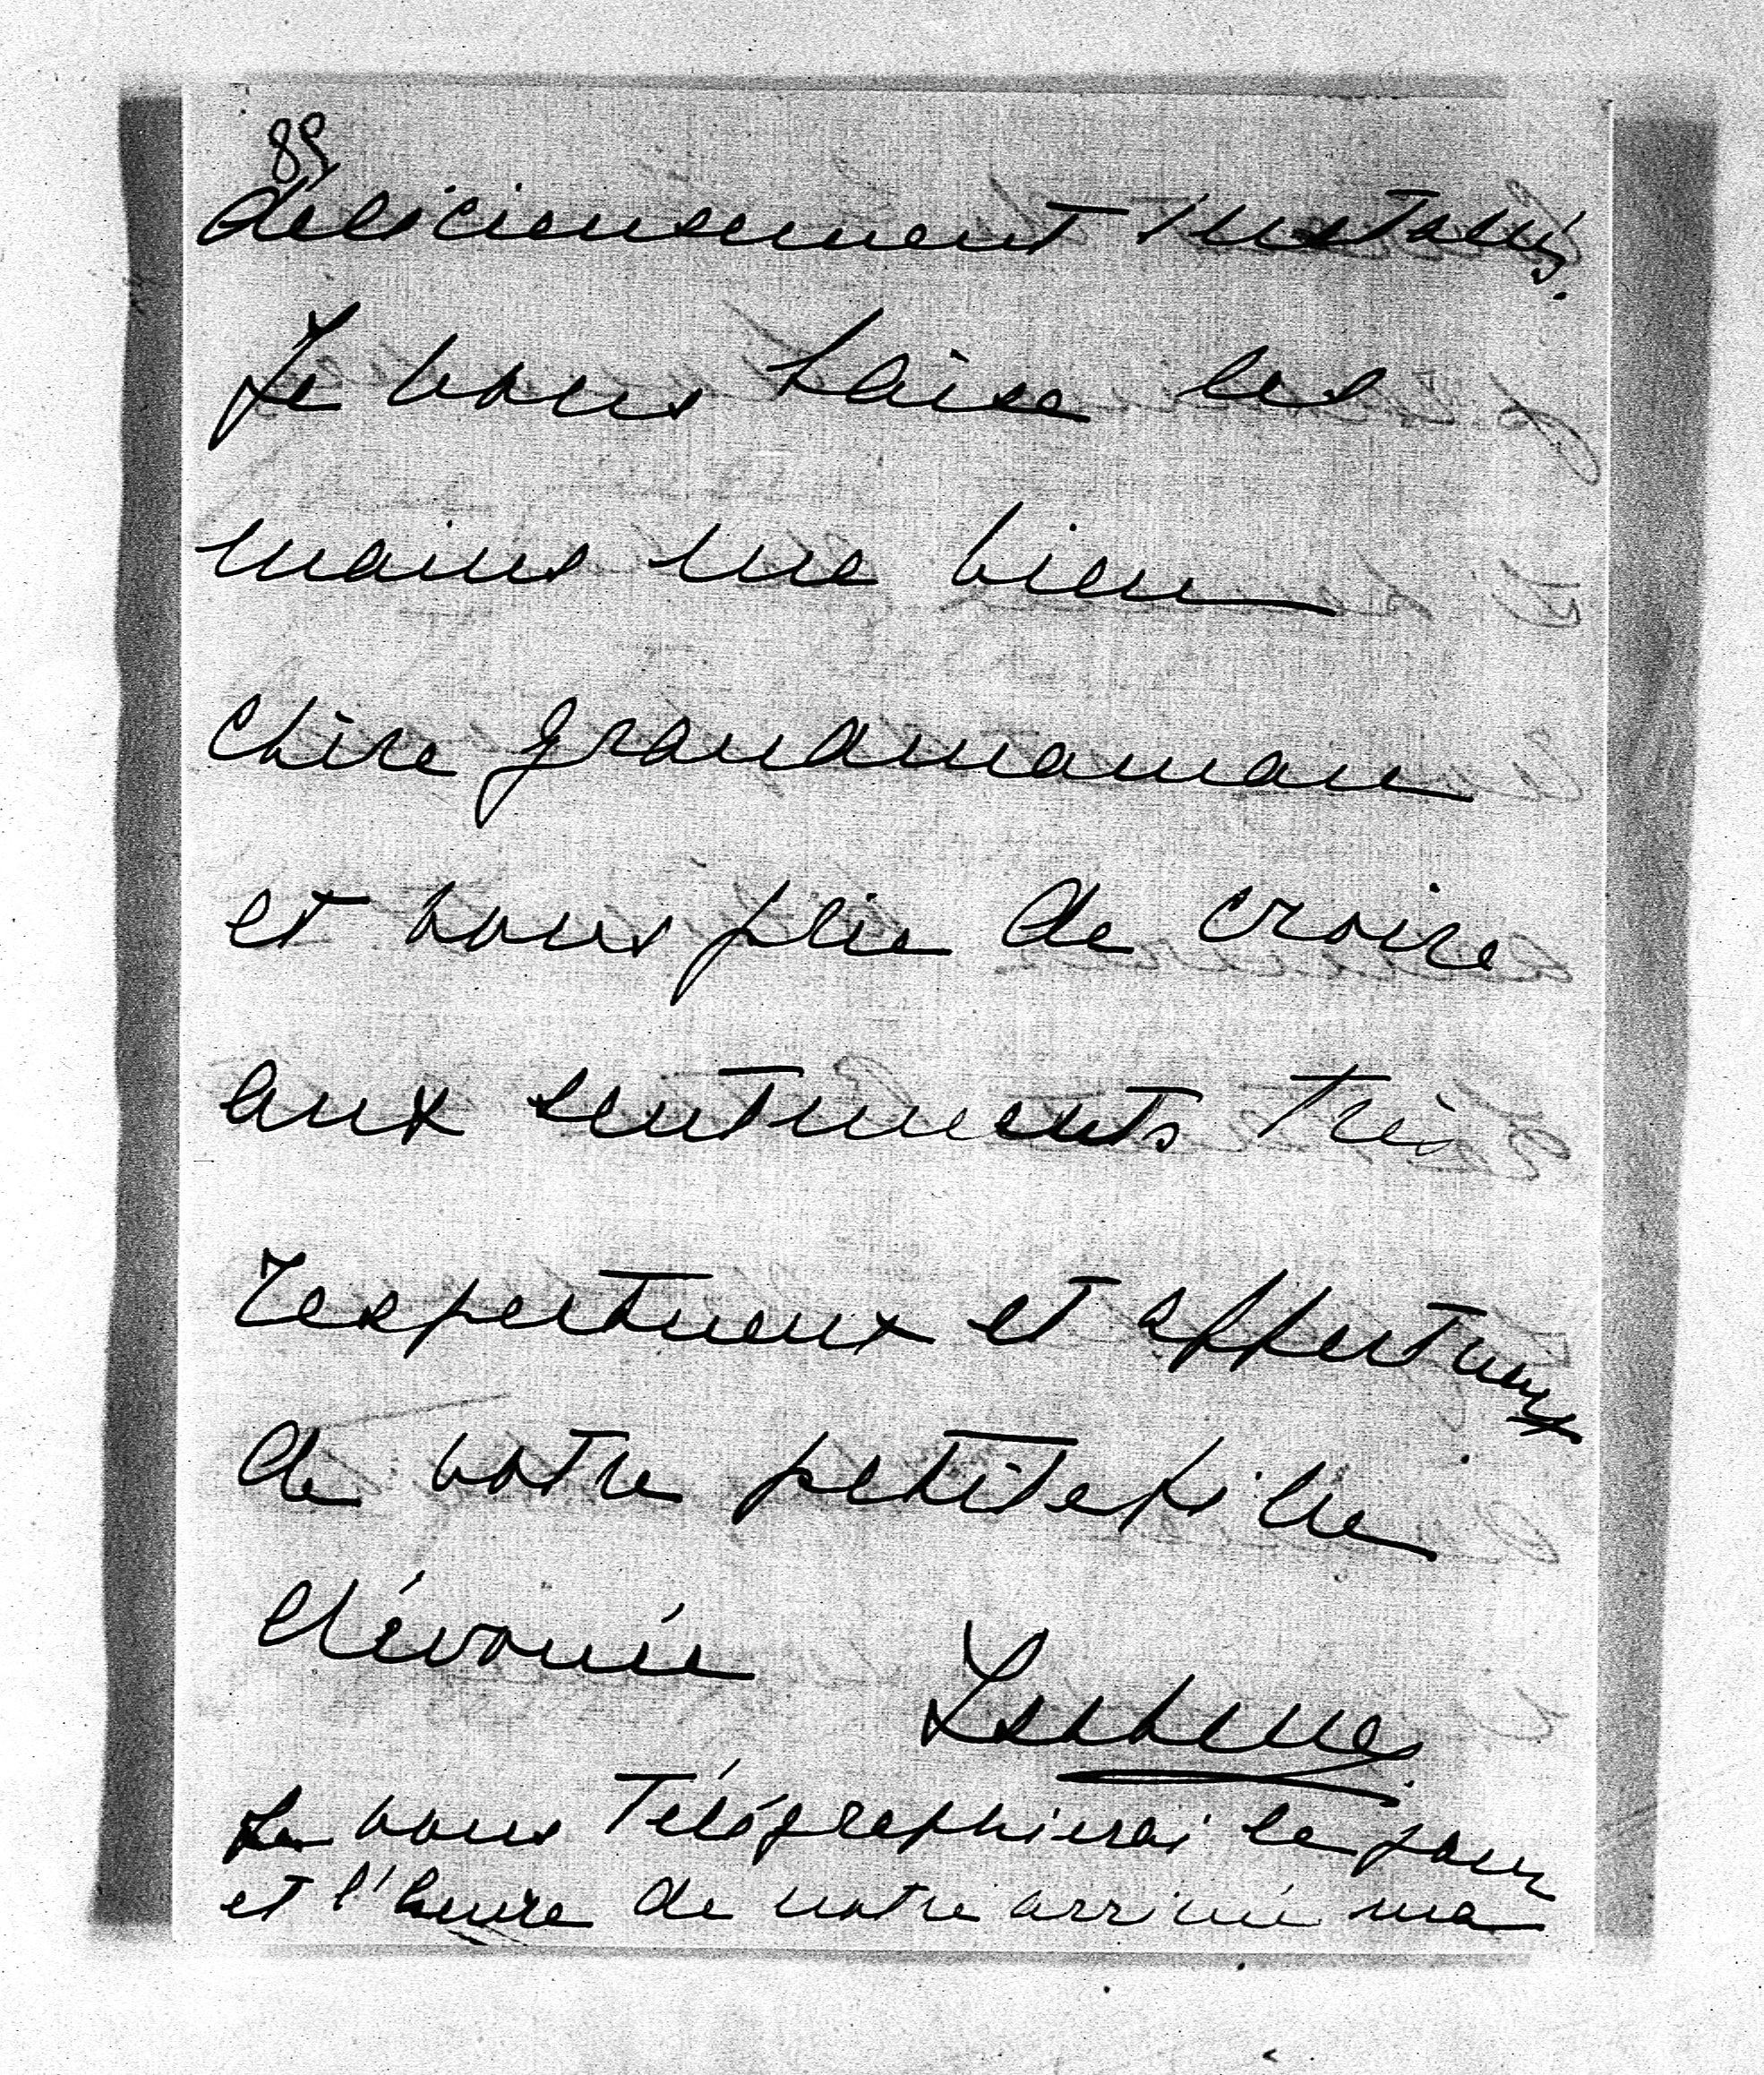 89
délicieusement installés.
Je vous baise les
mains ma bien
chère grandmaman
et vous prie de croire
aux sentiments très
respectueux et affectueux
de votre petite fille
dévouée
Je vous télégraphierai le jour
et l'heure de notre arrivée ma